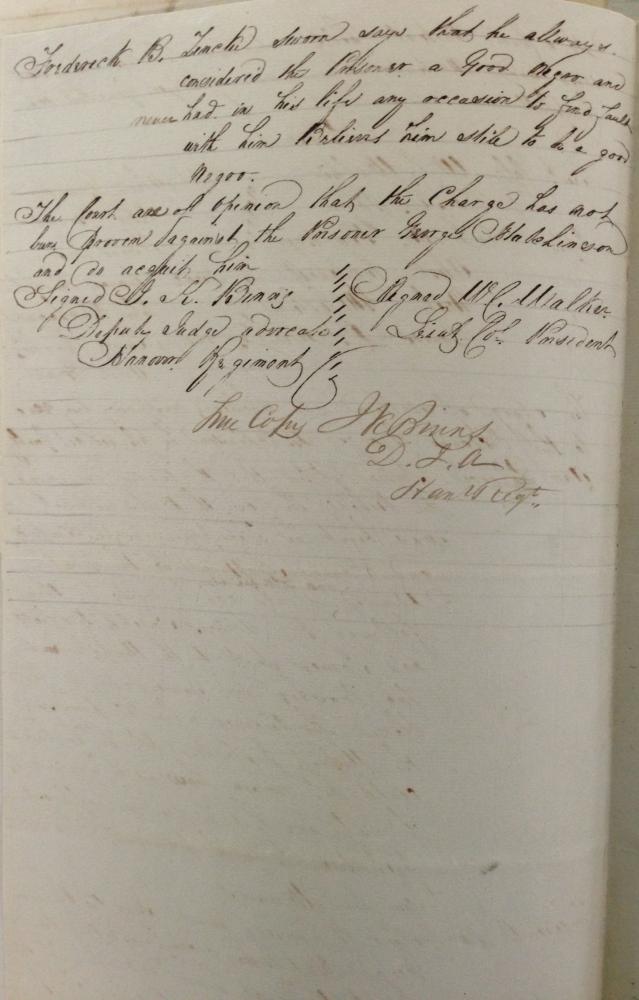 Frederick B. Zincke sworn says that he allways
considered the Prisoner a Good Negro and
never had in his life any occasion to find fault
with him Believes him still to be a good
Negro.
The Court are of opinion that the Charge has not
been proven against the Prisoner George Hutchinson
and do acquit him
Signed J. K. Binns
Signed Wm. C. Walker
Deputy Judge advocate
Lieut. Col. President
Hanover Regiment
True Copy J K Binns.
D. J. A
Han R Regt.